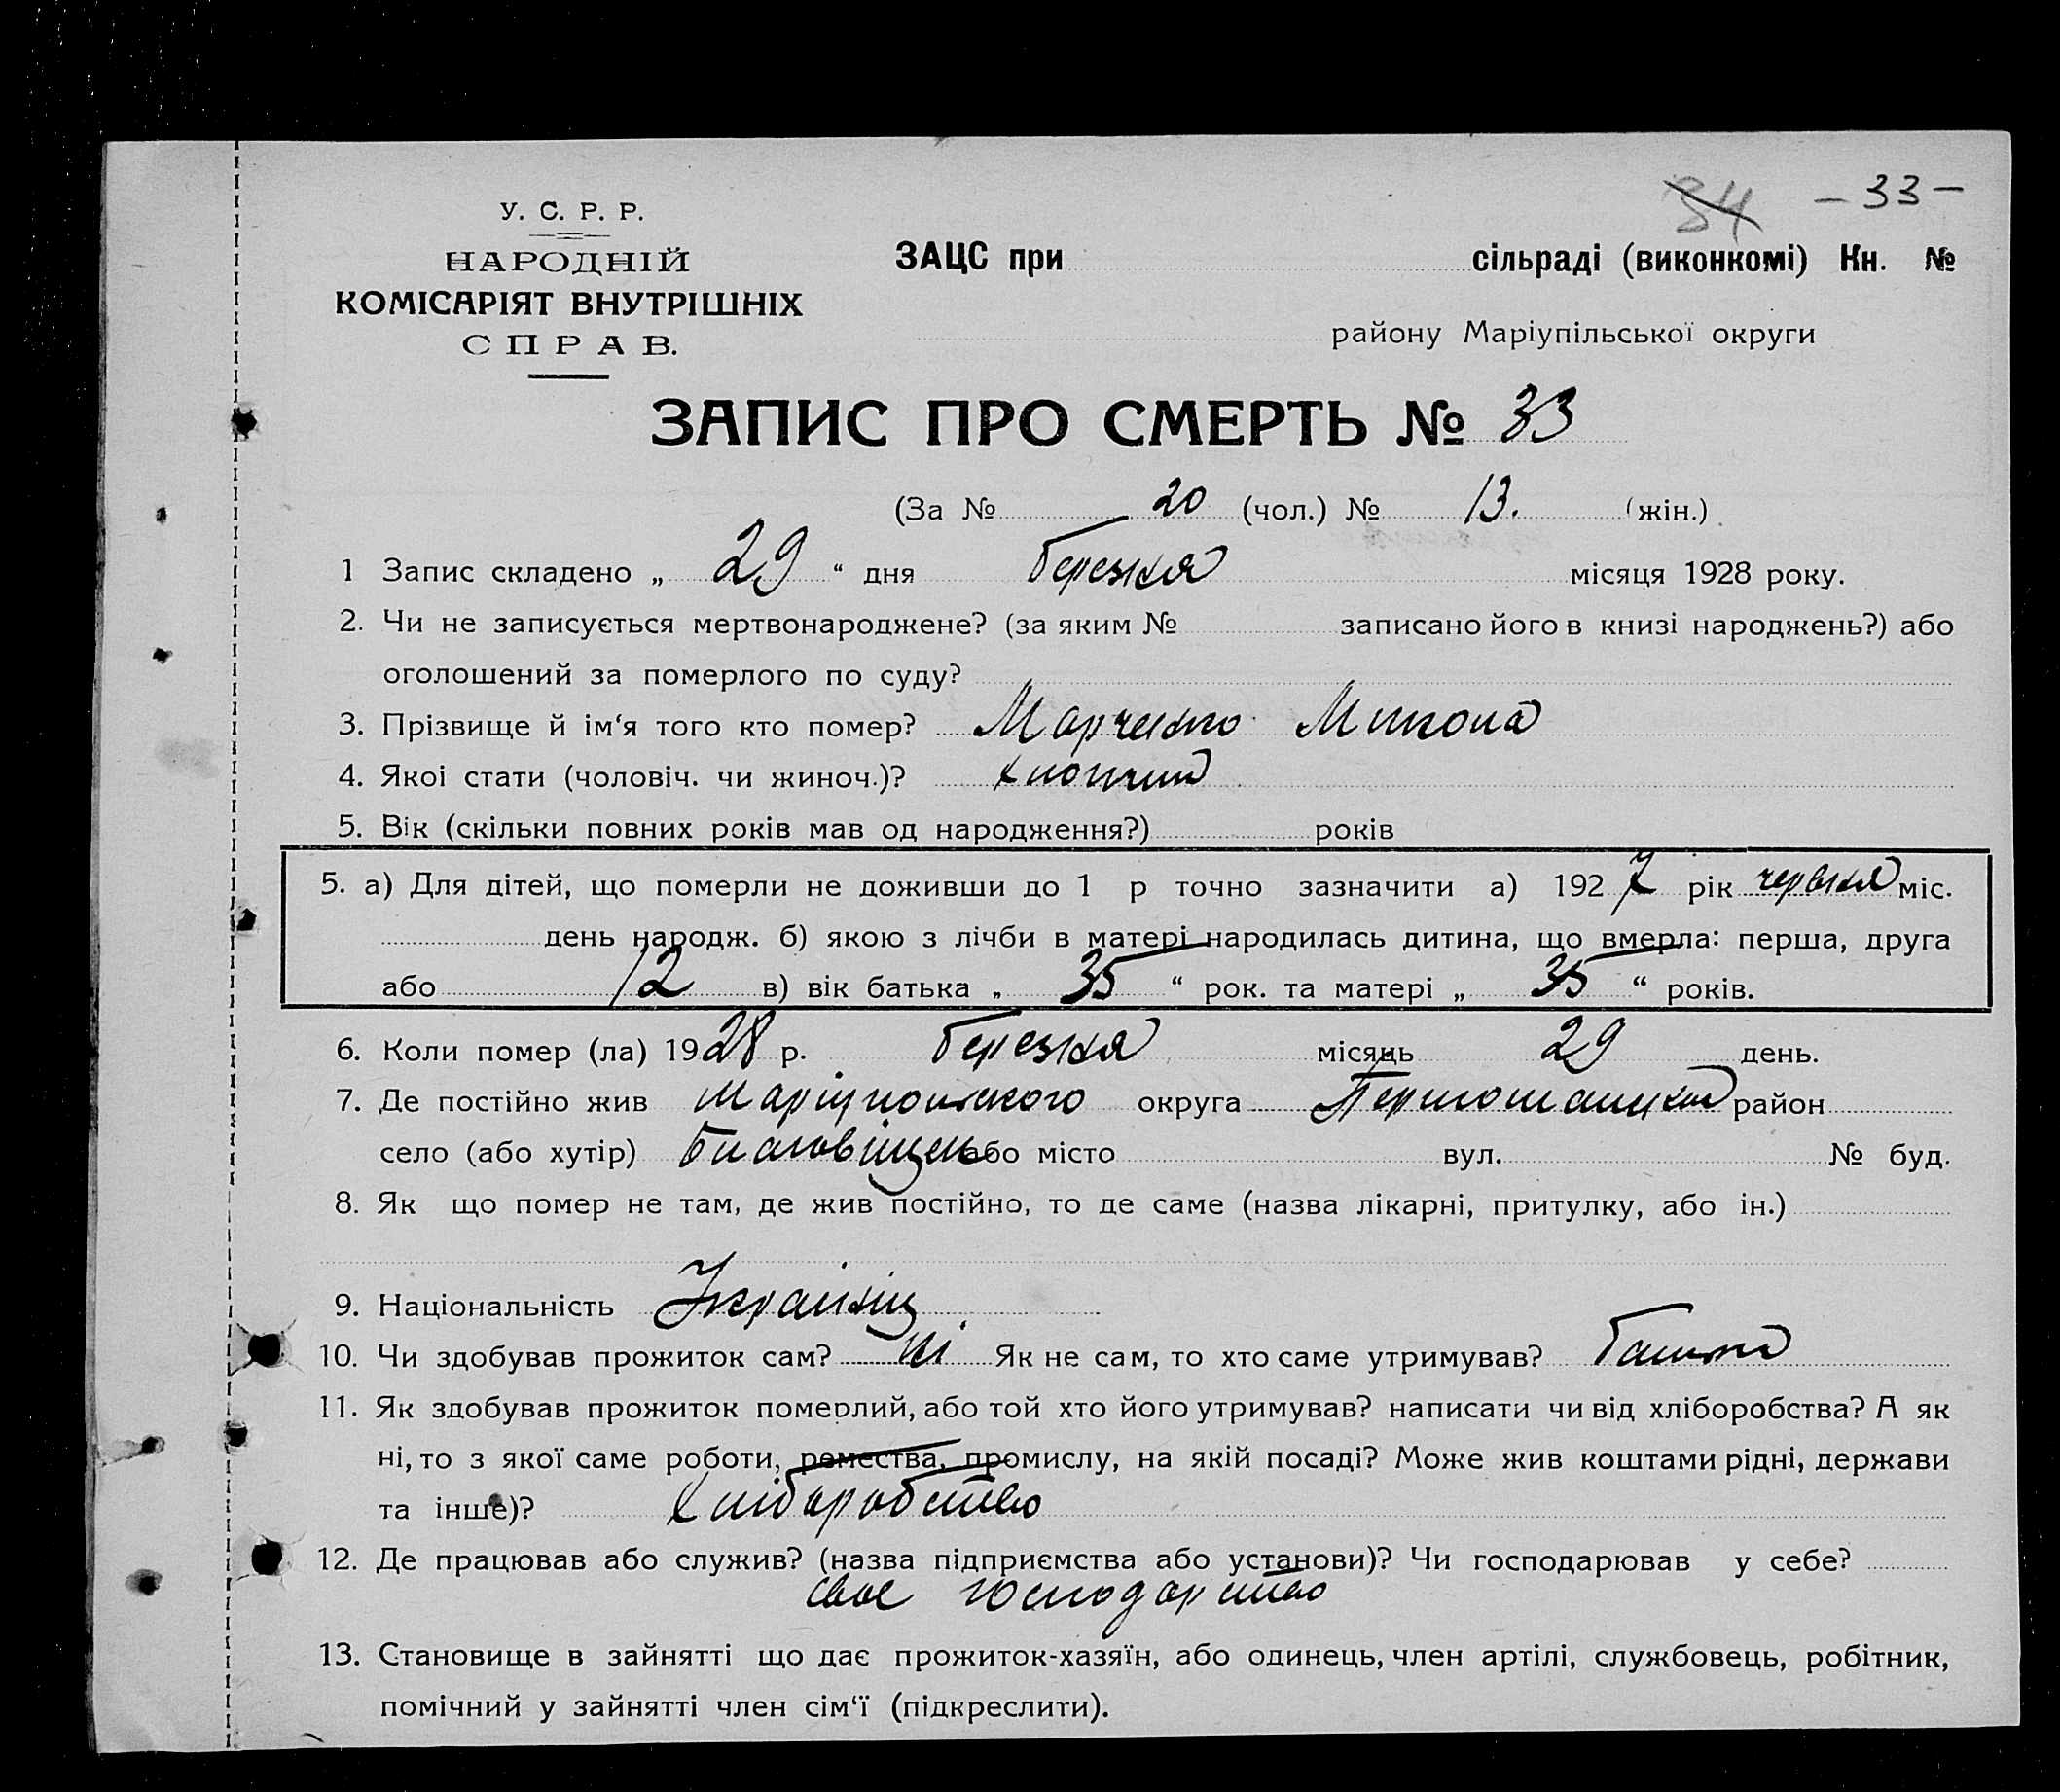 34 – 33 –
У. С. Р. Р.
НАРОДНІЙ
КОМІСАРІЯТ ВНУТРІШНІХ
СПРАВ.
ЗАЦС при сільраді (виконкомі) Кн. №
району Маріупільської округи
ЗАПИС ПРО СМЕРТЬ № 33
(За № 20 (чол.) № 13. (жін.)
1 Запис складено „ 29 “ дня березня місяця 1928 року.
2. Чи не записується мертвонароджене? (за яким № записано його в книзі народжень?) або
оголошений за померлого по суду?
3. Прізвище й ім‘я того кто помер? Марченко Микола
4. Якоі стати (чоловіч. чи жиноч.)? хлопчик
5. Вік (скільки повних років мав од народження?) років
5. а) Для дітей, що померли не доживши до 1 р точно зазначити а) 1927 рік червня міс.
день народж. б) якою з лічби в матері народилась дитина, що вмерла: перша, друга
або 12 в) вік батька „ 35 “ рок. та матері „ 35 “ років.
6. Коли помер (ла) 1928 р. березня місяць 29 день.
7. Де постійно жив Маріупольского округа район
село (або хутір) або місто вул. № буд.
8. Як що помер не там, де жив постійно, то де саме (назва лікарні, притулку, або ін.)
9. Національність Українець
10. Чи здобував прожиток сам? ні Як не сам, то хто саме утримував? батько
11. Як здобував прожиток померлий, або той хто його утримував? написати чи від хліборобства? А як
ні, то з якої саме роботи, ремества, промислу, на якій посаді? Може жив коштами рідні, держави
та інше)? Хліборобство
12. Де працював або служив? (назва підприємства або установи)? Чи господарював у себе?
своє господарство
13. Становище в зайнятті що дає прожиток-хазяїн, або одинець, член артілі, службовець, робітник,
помічний у зайнятті член сім‘ї (підкреслити).